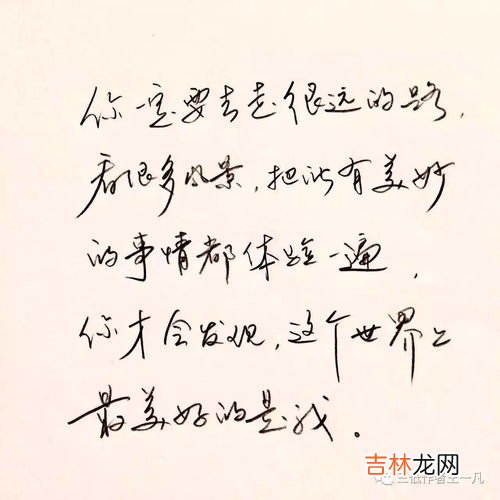 你一定要去走很远的路，
看很多风景，把所有美妙
的事情都体验一遍，
你才会发现，这个世界上
最美好的是我。
吉林龙网
三流作者王一凡